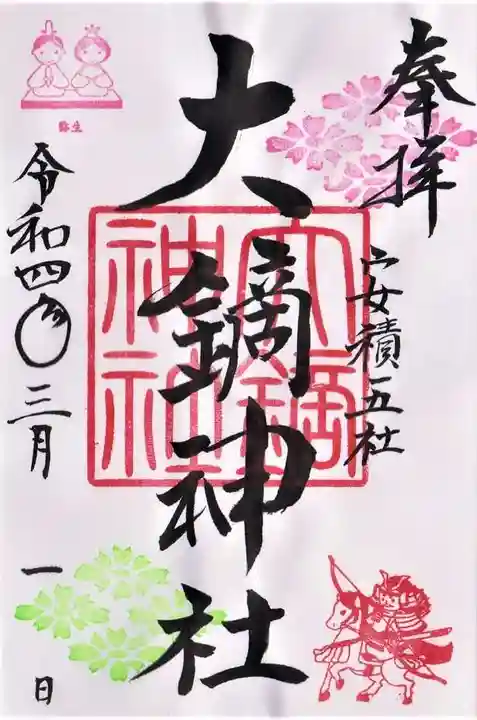 奉拝
安積五社
大鏑神社
大鏑神社
弥生
令和四年三月一日